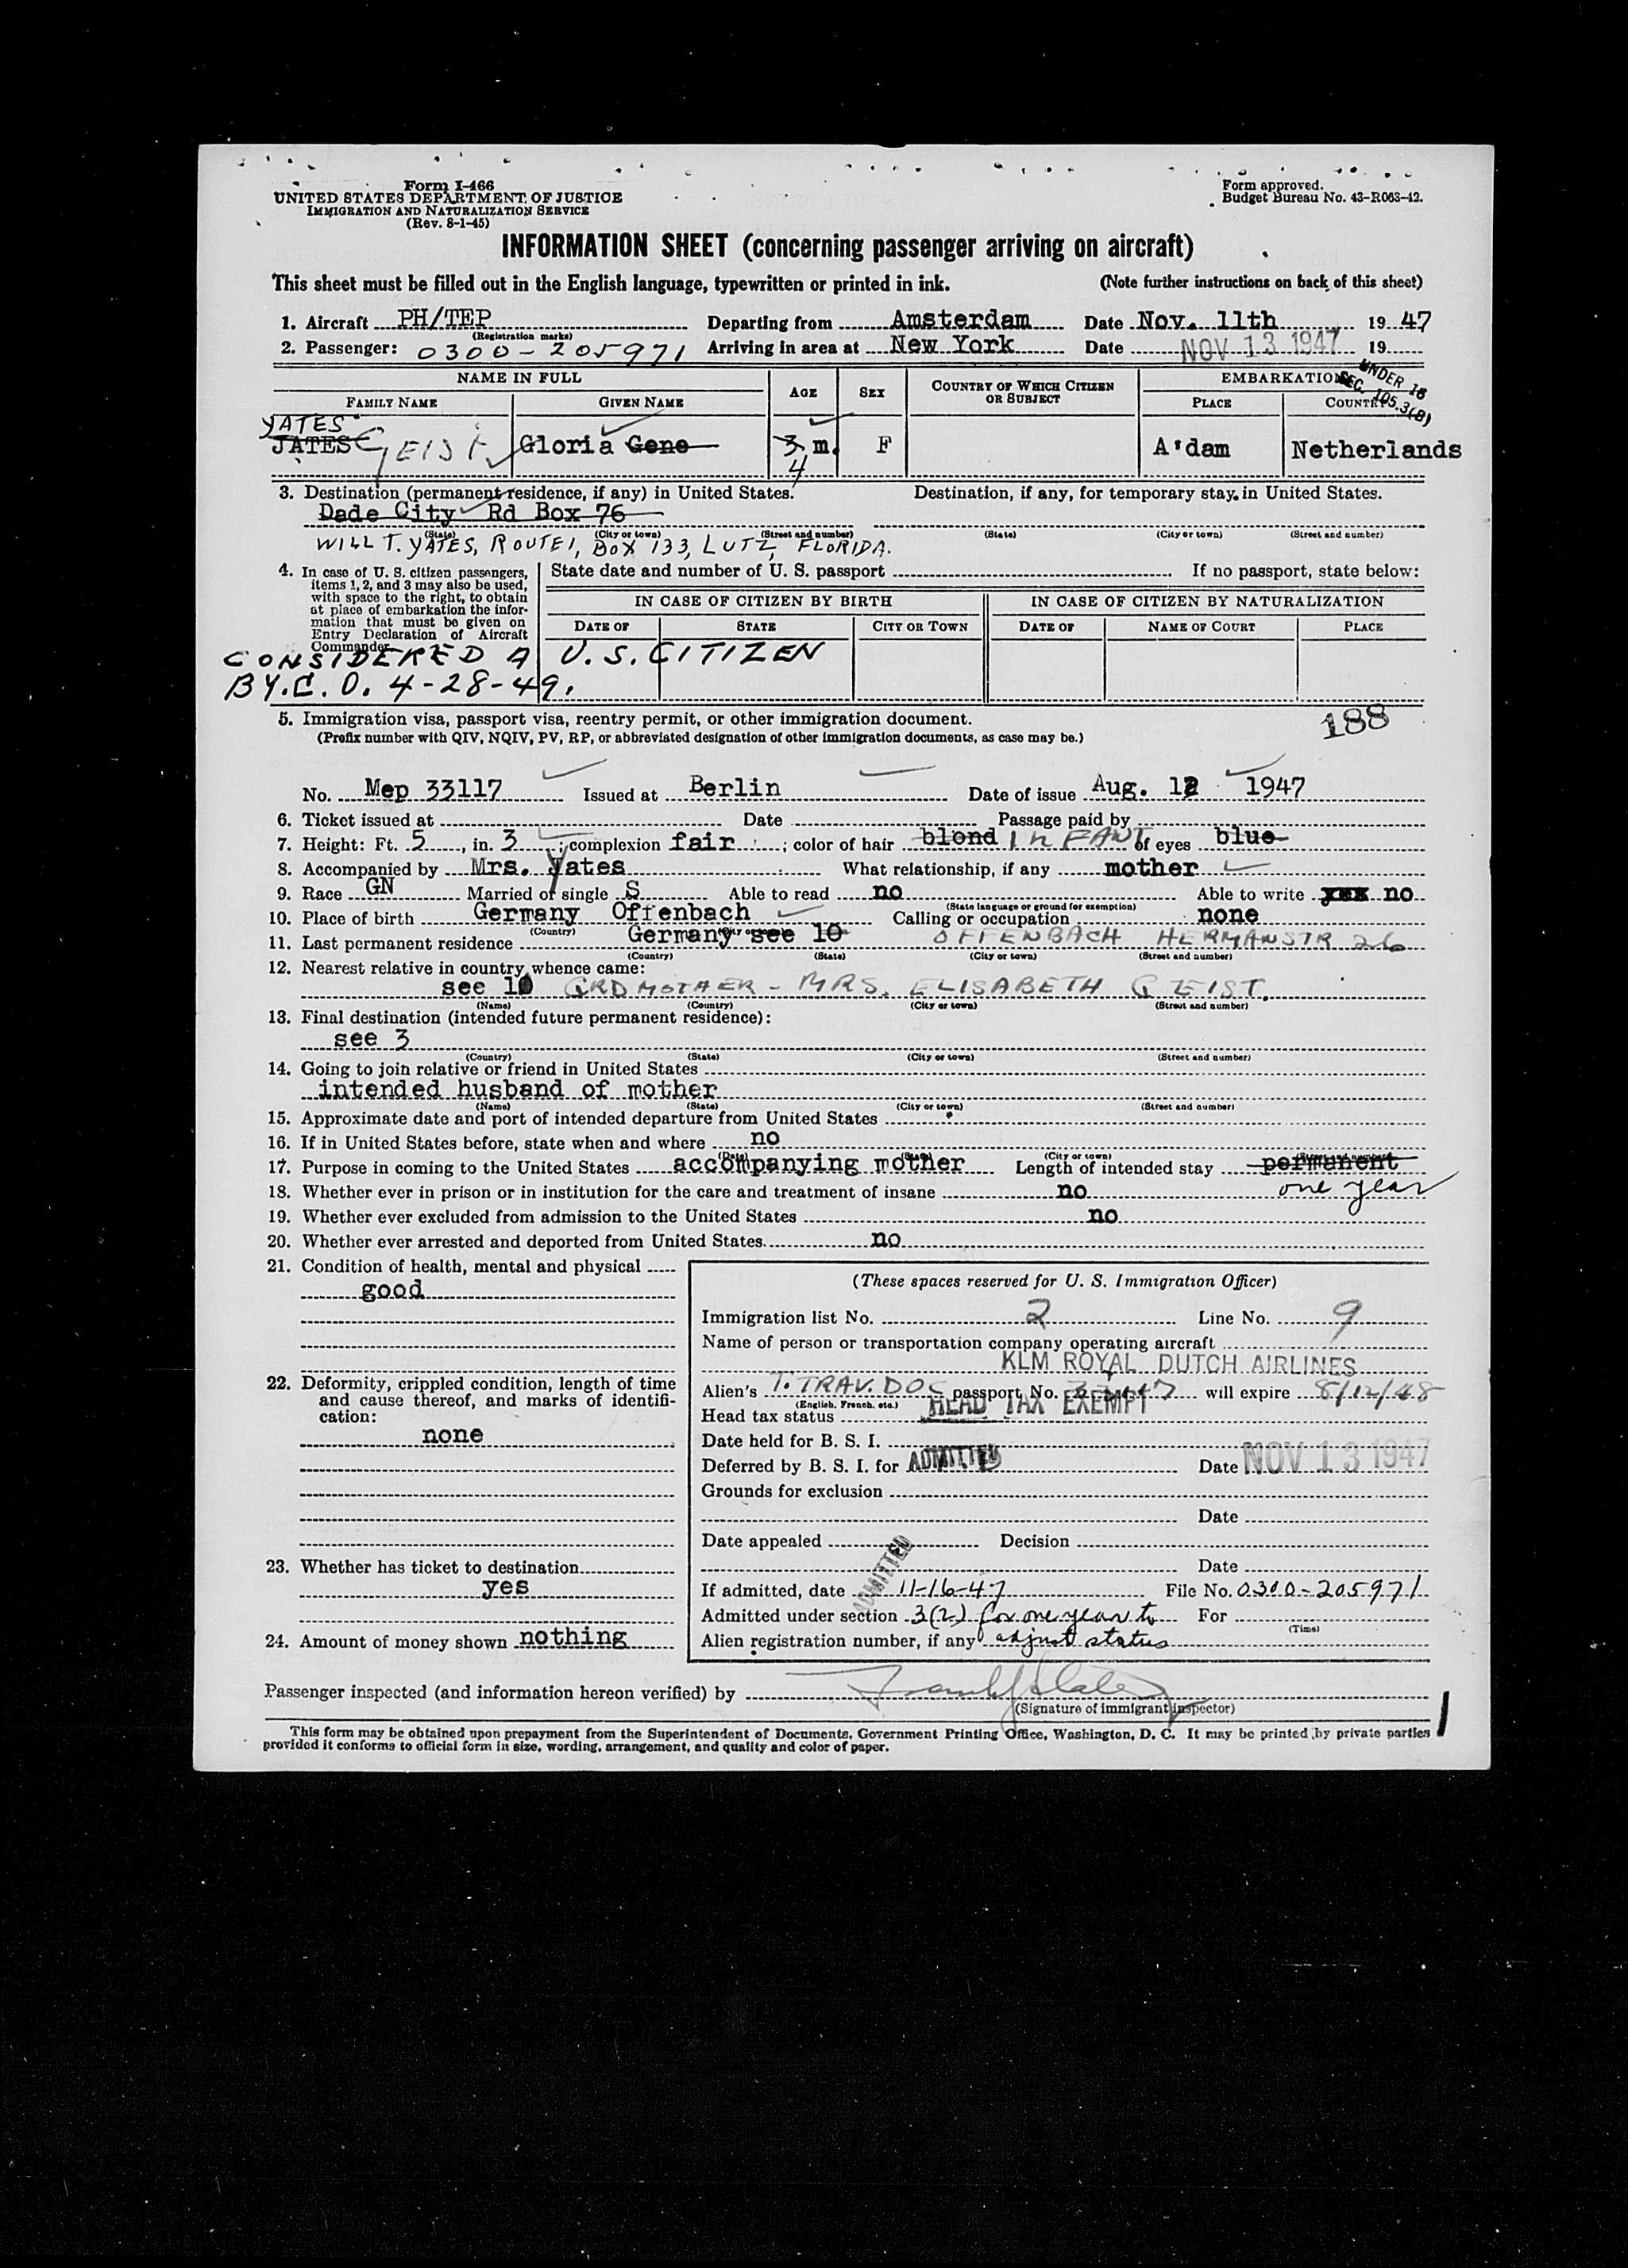 Form I-466
UNITED STATES DEPARTMENT OF JUSTICE
IMMIGRATION AND NATURALIZATION SERVICE
(Rev. 8-1-45)
Form approved.
Budget Bureau No. 43-R063-42.
INFORMATION SHEET (concerning passenger arriving on aircraft)
This sheet must be filled out in the English language, typewritten or printed in ink. (Note further instructions on back of this sheet)
1. Aircraft PH/TEP Departing from Amsterdam Date Nov. 11th 19 47
(Registration marks)
2. Passenger: 0300-205971 Arriving in area at New York Date NOV 13 1947 19
UNDER 16
SEC. 105.3(B)
NAME IN FULL AGE SEX COUNTRY OF WHICH CITIZEN OR SUBJECT EMBARKATION
FAMILY NAME GIVEN NAME PLACE COUNTRY
YATES
JATES GEIST Gloria Gene 3 m. F A'dam Netherlands
4
3. Destination (permanent residence, if any) in United States. Destination, if any, for temporary stay in United States.
Dade City Rd Box 76
(State) (City or town) (Street and number) (State) (City or town) (Street and number)
WILL T. YATES, ROUTE 1, BOX 133, LUTZ, FLORIDA.
4. In case of U. S. citizen passengers, items 1, 2, and 3 may also be used, with space to the right, to obtain at place of embarkation the information that must be given on Entry Declaration of Aircraft Commander
State date and number of U. S. passport If no passport, state below:
IN CASE OF CITIZEN BY BIRTH IN CASE OF CITIZEN BY NATURALIZATION
DATE OF STATE CITY OR TOWN DATE OF NAME OF COURT PLACE
CONSIDERED A U.S. CITIZEN
BY C.O. 4-28-49.
5. Immigration visa, passport visa, reentry permit, or other immigration document.
(Prefix number with QIV, NQIV, PV, RP, or abbreviated designation of other immigration documents, as case may be.)
188
No. Mep 33117 Issued at Berlin Date of issue Aug. 12 1947
6. Ticket issued at Date Passage paid by
7. Height: Ft. 5, in. 3; complexion fair; color of hair blond INFANT of eyes blue
8. Accompanied by Mrs. Yates What relationship, if any mother
9. Race GN Married or single S Able to read no Able to write yes no
(State language or ground for exemption)
10. Place of birth Germany Offenbach Calling or occupation none
(Country) (City or town)
11. Last permanent residence Germany see 10 OFFENBACH HERMANSTR 26
(Country) (State) (City or town) (Street and number)
12. Nearest relative in country whence came:
see 10 GRDMOTHER - MRS. ELISABETH GEIST.
(Name) (Country) (City or town) (Street and number)
13. Final destination (intended future permanent residence):
see 3
(Country) (State) (City or town) (Street and number)
14. Going to join relative or friend in United States
intended husband of mother
(Name) (State) (City or town) (Street and number)
15. Approximate date and port of intended departure from United States
16. If in United States before, state when and where no
(Date) (State) (City or town) (Street and number)
17. Purpose in coming to the United States accompanying mother Length of intended stay permanent
one year
18. Whether ever in prison or in institution for the care and treatment of insane no
19. Whether ever excluded from admission to the United States no
20. Whether ever arrested and deported from United States no
21. Condition of health, mental and physical
good
22. Deformity, crippled condition, length of time and cause thereof, and marks of identification:
none
23. Whether has ticket to destination
yes
24. Amount of money shown nothing
(These spaces reserved for U. S. Immigration Officer)
Immigration list No. 2 Line No. 9
Name of person or transportation company operating aircraft
KLM ROYAL DUTCH AIRLINES
Alien's T. TRAV. DOC passport No. 33117 will expire 8/12/48
(English, French, etc.)
Head tax status HEAD TAX EXEMPT
Date held for B. S. I.
Deferred by B. S. I. for ADMITTED Date NOV 13 1947
Grounds for exclusion
Date
Date appealed Decision
ADMITTED Date
If admitted, date 11-16-47 File No. 0300-205971
Admitted under section 3(2) for one year to For
(Time)
Alien registration number, if any adjust status
Passenger inspected (and information hereon verified) by
(Signature of immigrant inspector)
This form may be obtained upon prepayment from the Superintendent of Documents, Government Printing Office, Washington, D. C. It may be printed by private parties
provided it conforms to official form in size, wording, arrangement, and quality and color of paper.